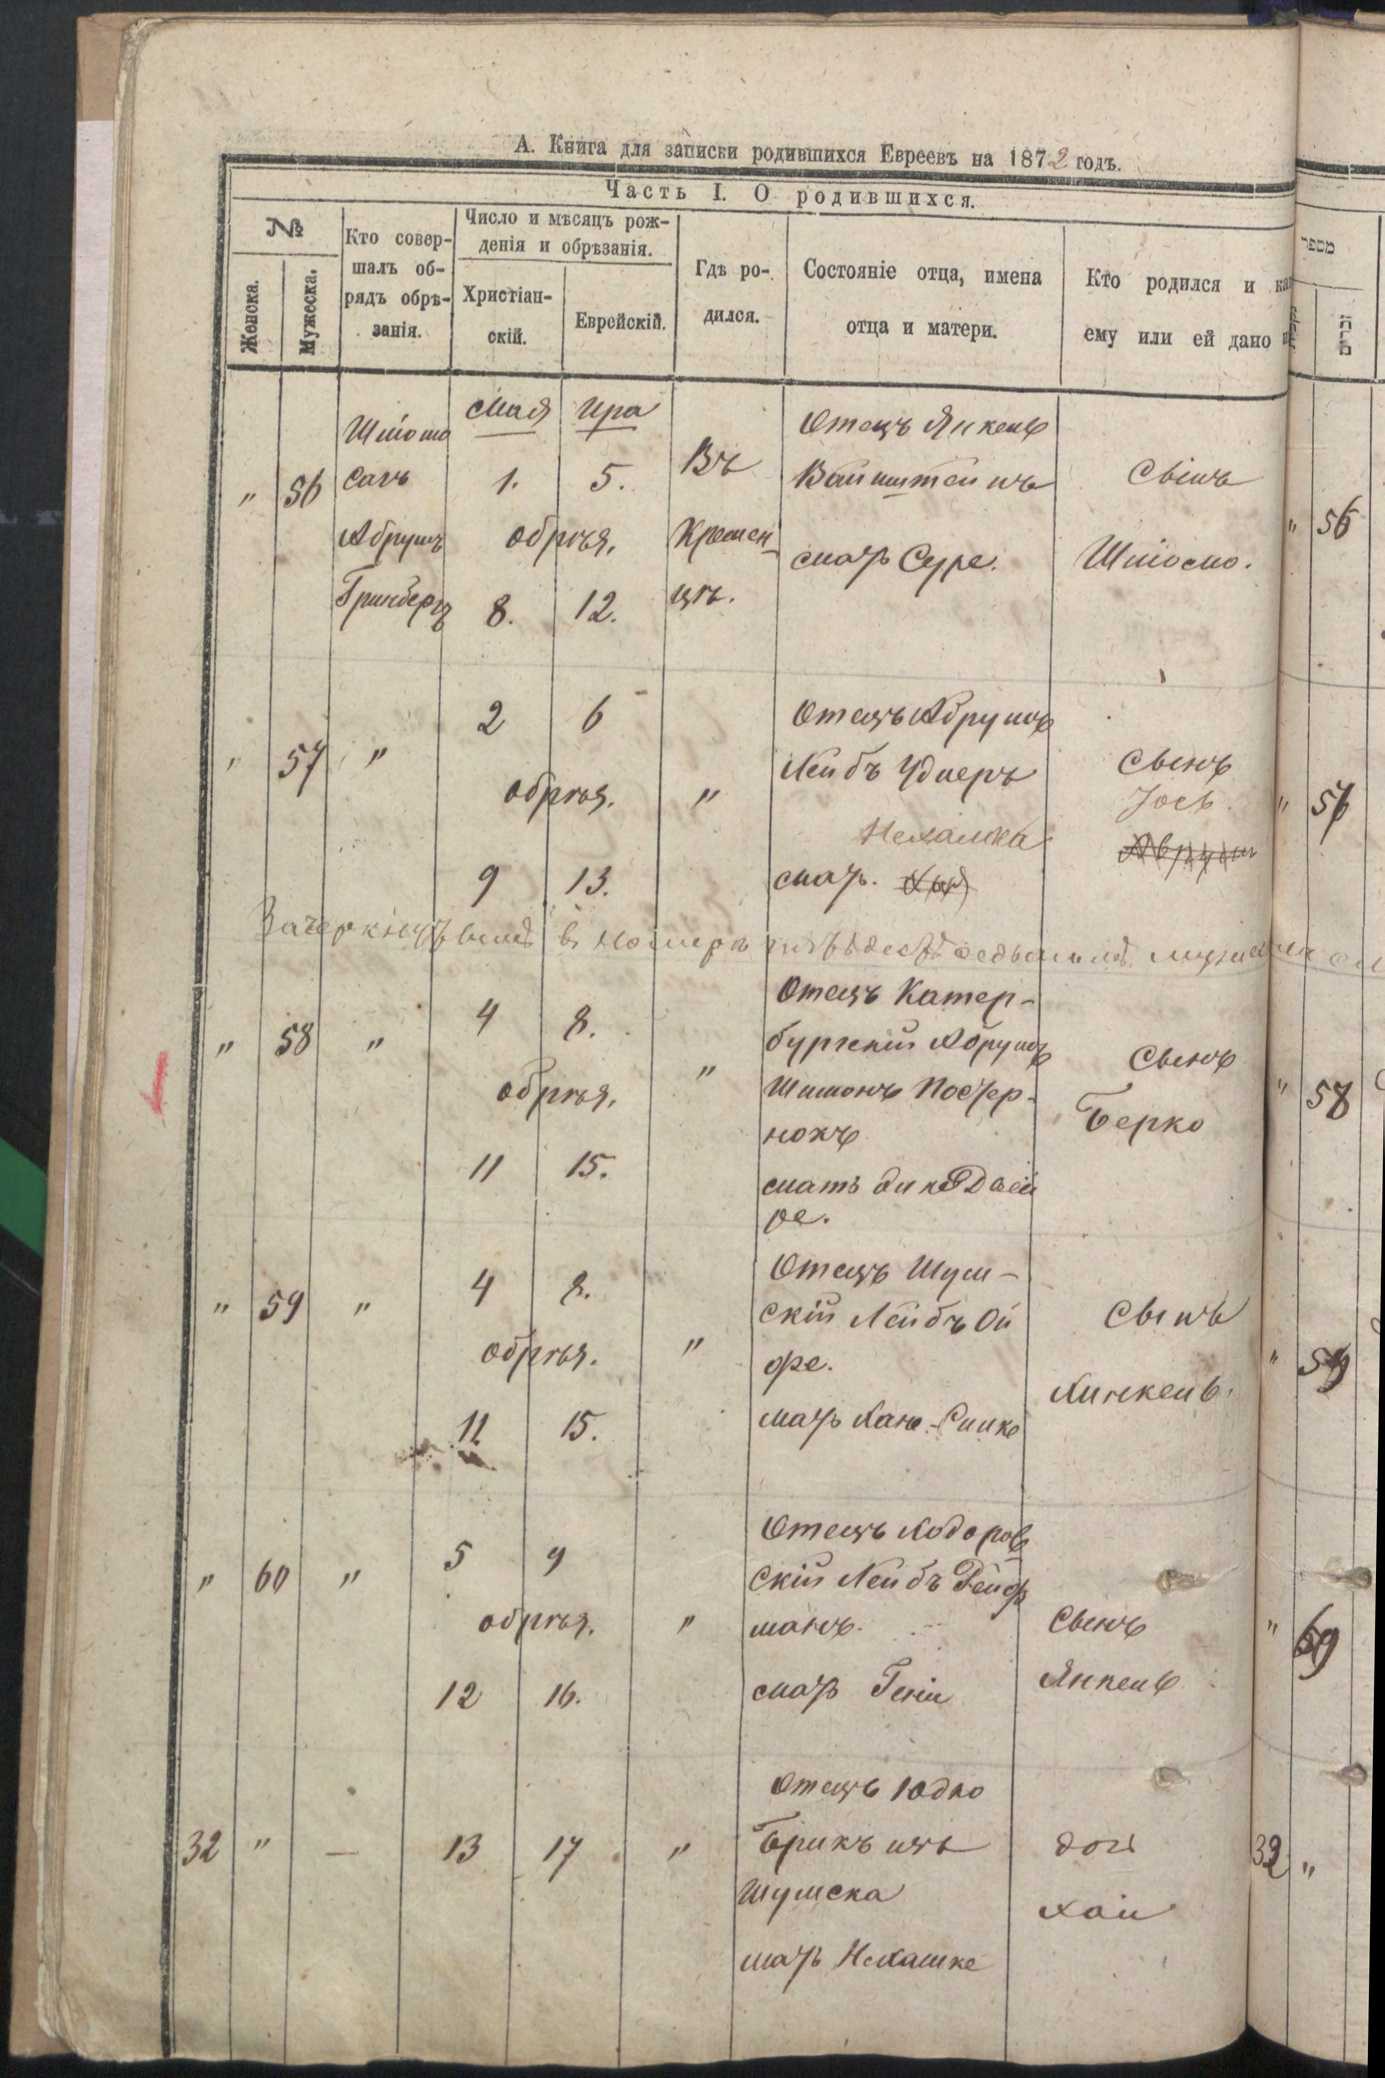 А. Книга для записки родившихся Евреевъ на 1872 годъ.
Часть I. О родившихся.
№
Женска.
Мужеска.
Кто совер-
шалъ об-
рядъ обрѣ-
занія.
Число и мѣсяцъ рож-
денія и обрѣзанія.
Христіан-
скій.
Еврейскій.
Гдѣ ро-
дился.
Состояніе отца, имена
отца и матери.
Кто родился и ка
ему или ей дано
מספר
זכרים
Мая Ира
" 56
Шлома
Сахъ
Абрумъ
Гринбергъ
1. 5.
обрѣз.
8. 12.
Въ
Кремен-
цѣ.
Отецъ Янкель
Вайнштейнъ
мать Суре.
Сынъ
Шліомо.
" 56
" 57 "
2 6
обрѣз.
9 13.
"
Отецъ Абрумъ
Лейбъ Удлеръ
Нехамка
мать.
Сынъ
Іось.
Аврум
" 57
Зачеркнутымъ въ номеръ пятьдесятъ седьмымъ
" 58 "
4 8.
обрѣз.
11 15.
"
Отецъ Катер-
бургскій Абрумъ
Шимонъ Постер-
нокъ
мать
ре.
Сынъ
Берко
" 58
" 59 "
4 8.
обрѣз.
11 15.
"
Отецъ Шум-
скій Лейбъ Ой
фе.
мать Хане-
Сынъ
Хинкель.
" 59
" 60 "
5 9
обрѣз.
12 16.
"
Отецъ Ходоров
скій Лейбъ Рейф
манъ.
мать Геніи
Сынъ
Янкель
" 60
32 " —
13 17
"
Отецъ Юдко
Брикъ изъ
Шумска
мать Нехамке
доч
Хаи
32 "